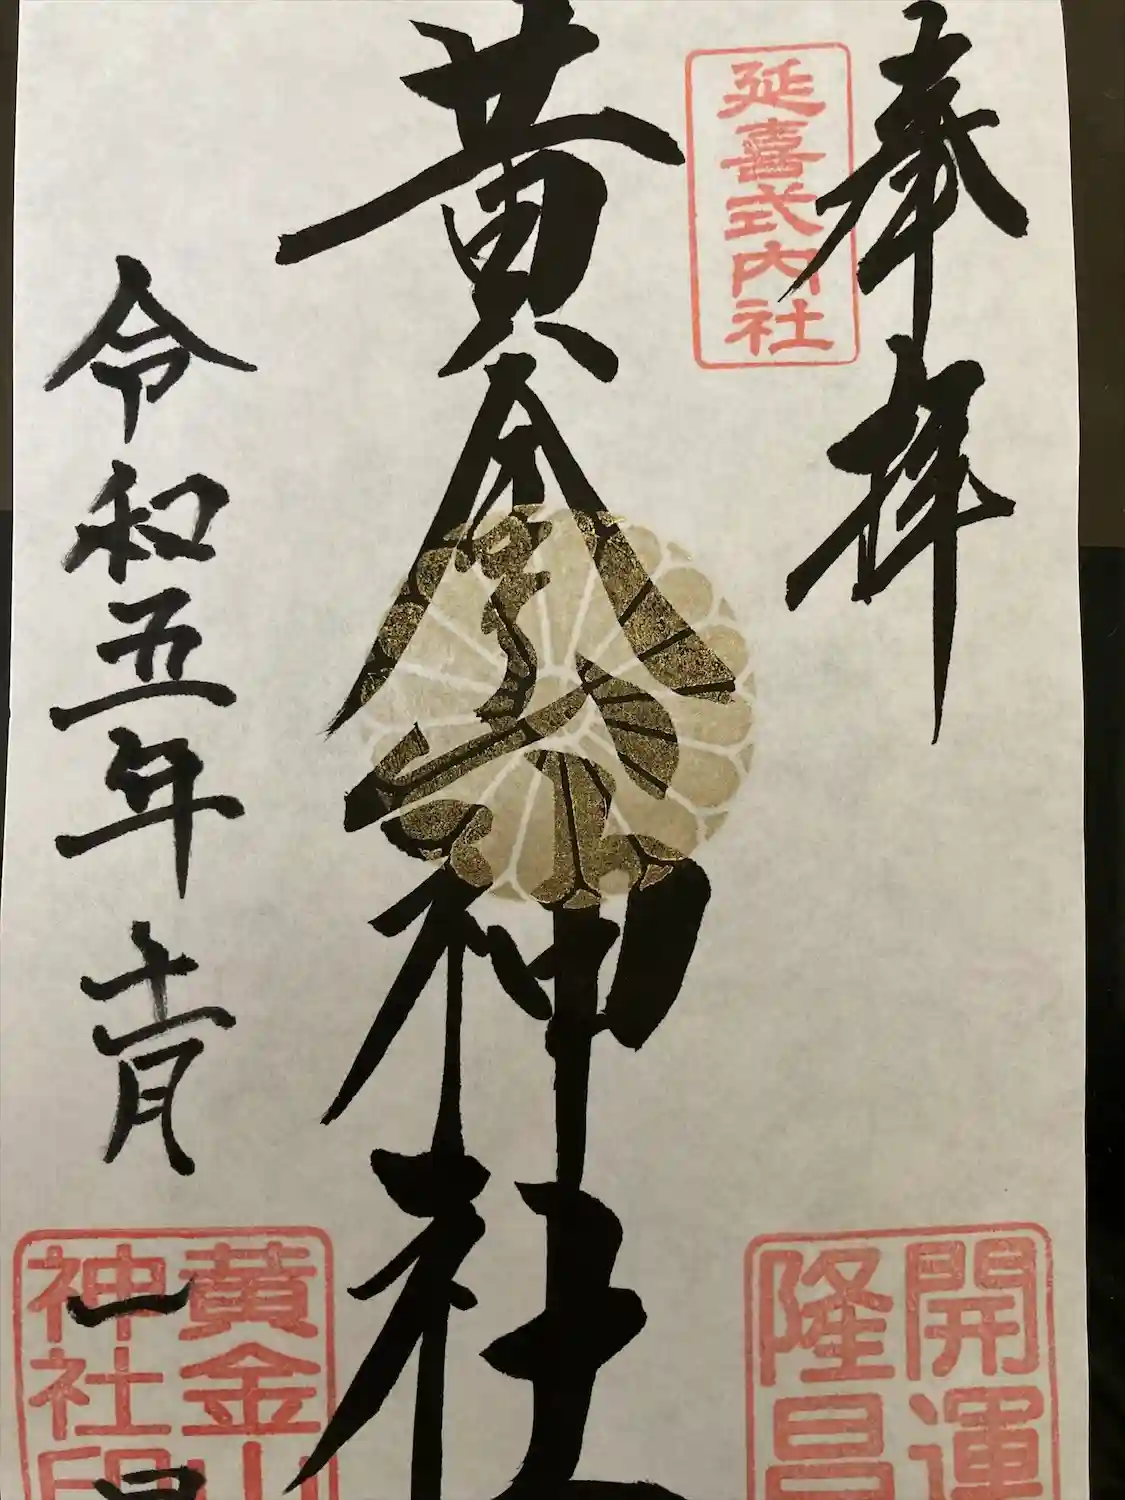 奉拝
延喜式内社
開運
隆昌
黄金山神社
令和五年十一月一日
黄金山
神社印